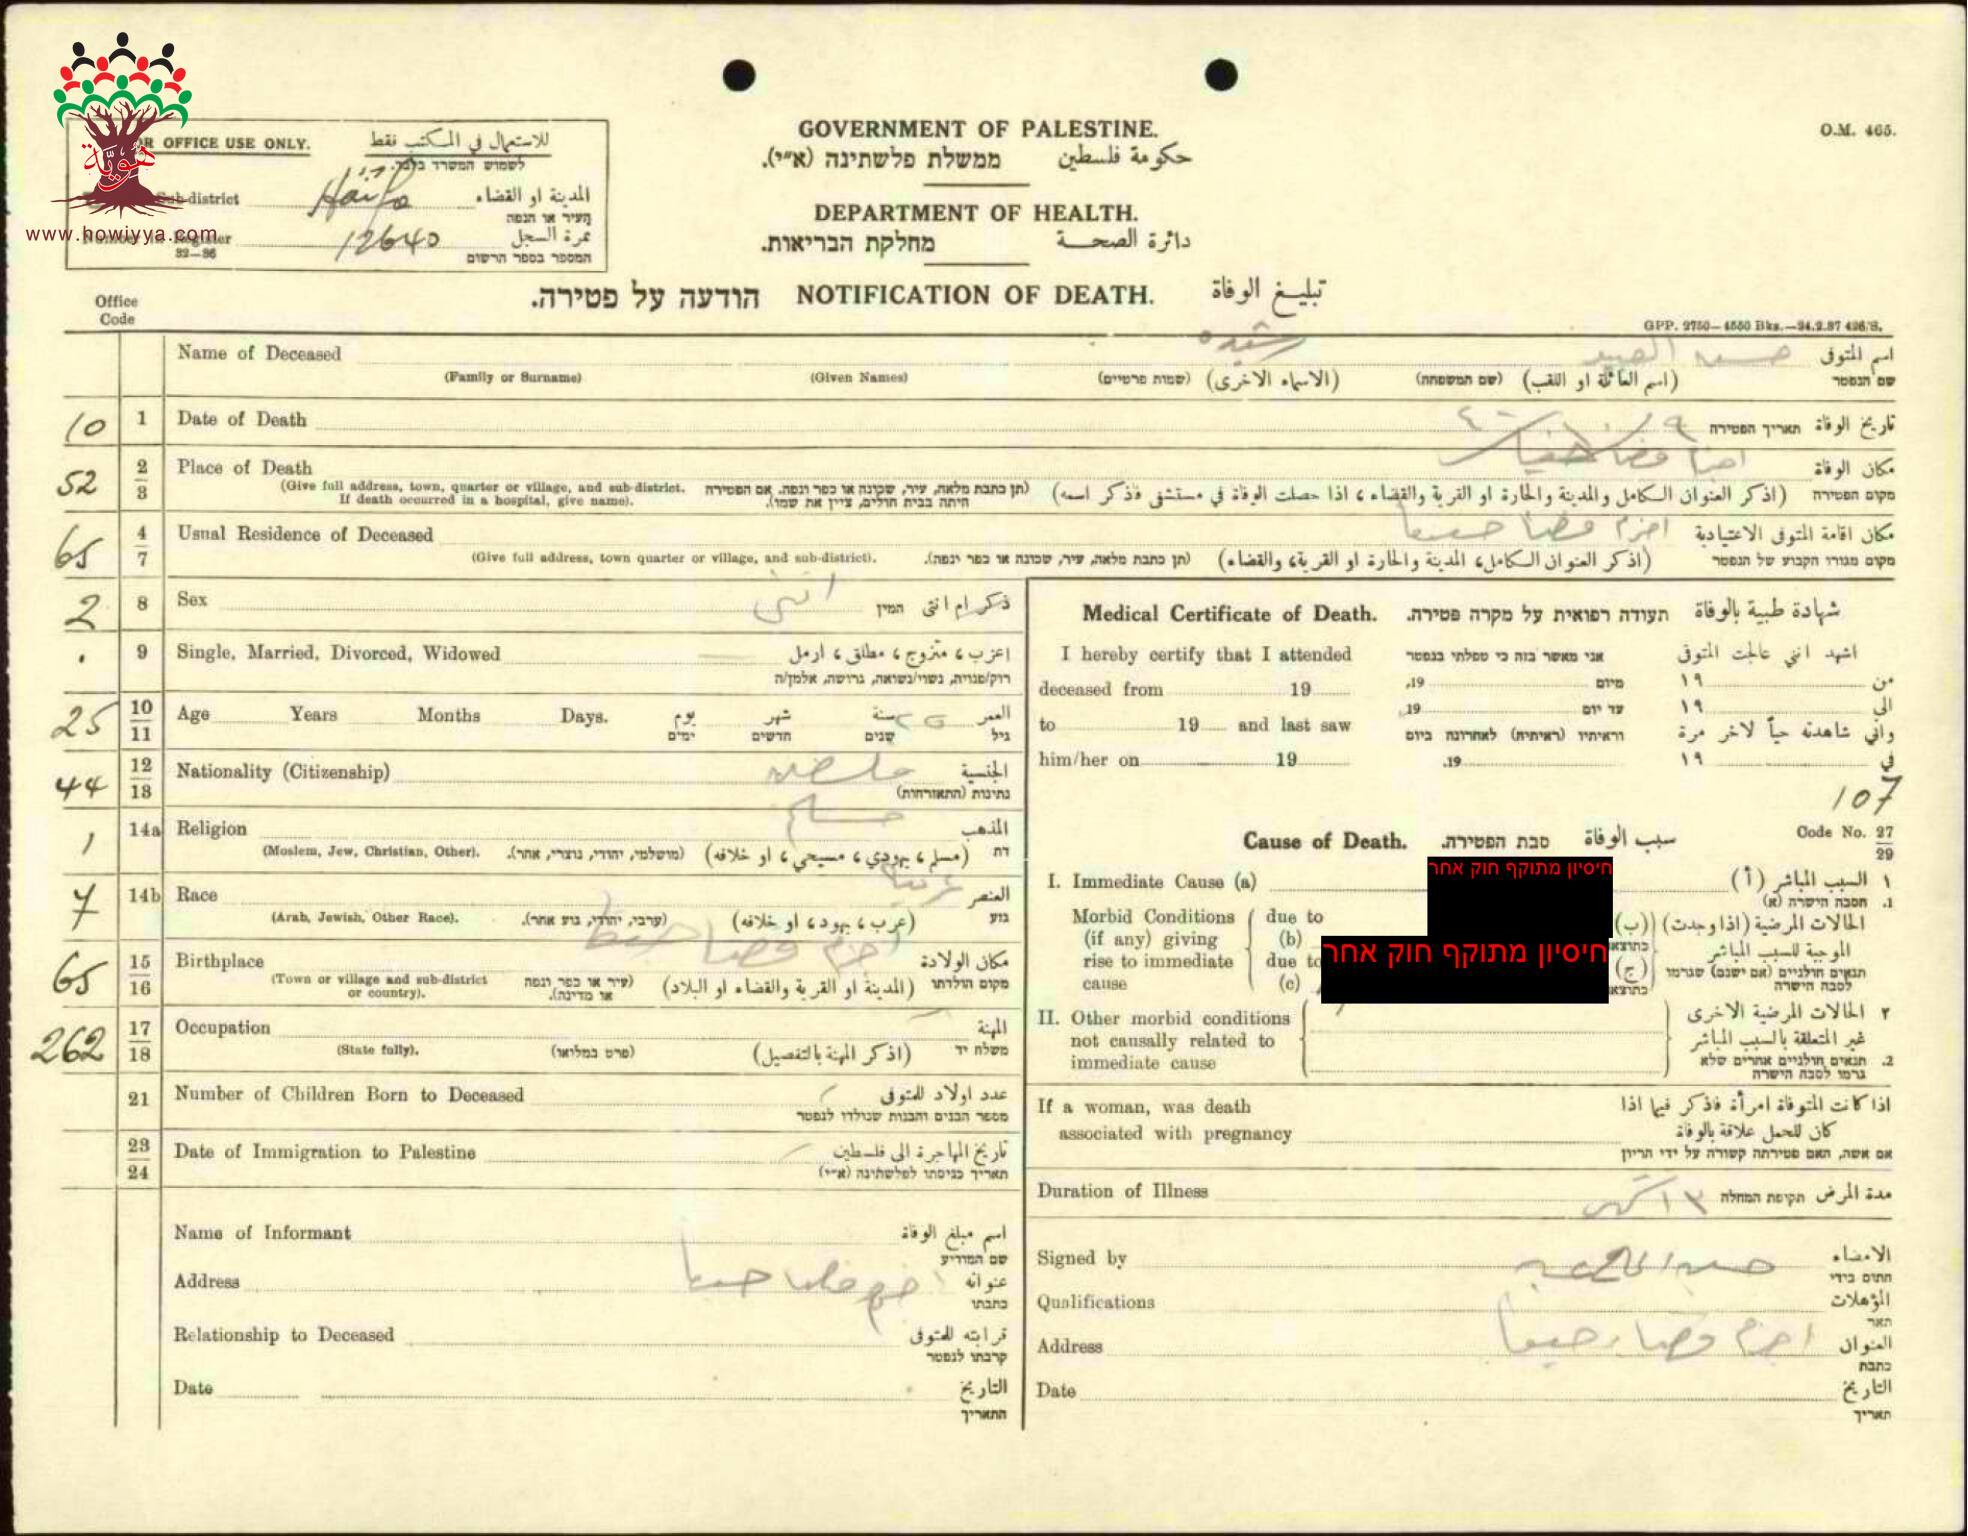 هويّة
www.howiyya.com
OR OFFICE USE ONLY. للاستعمال في المكتب فقط
לשמוש המשרד בלבד.
Sub-district Haifa المدينة او القضاء
העיר או הנפה
Number in Register 12640 نمرة السجل
32—36 המספר בספר הרשום
GOVERNMENT OF PALESTINE.
ממשלת פלשתינה (א״י). حكومة فلسطين
DEPARTMENT OF HEALTH.
מחלקת הבריאות. دائرة الصحة
O.M. 465.
הודעה על פטירה. NOTIFICATION OF DEATH. تبليغ الوفاة
Office
Code
GPP. 2750—4550 Bks.—24.2.37 426/S.
Name of Deceased رشيده حسن اسم المتوفى
(Family or Surname) (Given Names) (שמות פרטיים) (الاسماء الاخرى) (שם המשפחה) (اسم العائلة او اللقب) שם הנפטר
10 1 Date of Death תאריך הפטירה تاريخ الوفاة
52 2 3 Place of Death اجزم قضا حيفا مكان الوفاة
(Give full address, town, quarter or village, and sub-district. If death occurred in a hospital, give name).
(תן כתבת מלאה, עיר, שכונה או כפר ונפה. אם הפטירה היתה בבית חולים, ציין את שמו).
(اذكر العنوان الكامل والمدينة والحارة او القرية والقضاء ، اذا حصلت الوفاة في مستشفى فاذكر اسمه) מקום הפטירה
65 4 7 Usual Residence of Deceased اجزم قضا حيفا مكان اقامة المتوفى الاعتيادية
(Give full address, town quarter or village, and sub-district). (תן כתבת מלאה, עיר, שכונה או כפר ונפה). (اذكر العنوان الكامل، المدينة والحارة او القرية، والقضاء) מקום מגורי הקבוע של הנפטר
2 8 Sex انثى המין ذكر ام انثى
9 Single, Married, Divorced, Widowed اعزب ، متزوج ، مطلق ، ارمل
רוק/פנויה, נשוי/נשואה, גרושה, אלמן/ה
25 10 11 Age Years Months Days. يوم شهر سنة ٢٥ العمر
ימים חדשים שנים גיל
44 12 13 Nationality (Citizenship) الجنسية
נתינות (התאזרחות)
1 14a Religion مسلم المذهب
(Moslem, Jew, Christian, Other). (מושלמי, יהודי, נוצרי, אחר). (مسلم ، يهودي ، مسيحي ، او خلافه) דת
7 14b Race عربي العنصر
(Arab, Jewish, Other Race). (ערבי, יהודי, גוע אחר). (عرب ، يهود ، او خلافه) גוע
65 15 16 Birthplace اجزم قضا حيفا مكان الولادة
(Town or village and sub-district or country). (עיר או כפר ונפה או מדינה). (المدينة او القرية والقضاء او البلاد) מקום הולדתו
262 17 18 Occupation المهنة
(State fully). (פרט במלואו) (اذكر المهنة بالتفصيل) משלח יד
21 Number of Children Born to Deceased عدد اولاد للمتوفى
מספר הבנים והבנות שנולדו לנפטר
23 24 Date of Immigration to Palestine تاريخ المهاجرة الى فلسطين
תאריך כניסתו לפלשתינה (א״י)
Name of Informant اسم مبلغ الوفاة
שם המודיע
Address اجزم قضا حيفا عنوانه
כתבתו
Relationship to Deceased قرابته للمتوفى
קרבתו לנפטר
Date التاريخ
התאריך
Medical Certificate of Death. תעודה רפואית על מקרה פטירה. شهادة طبية بالوفاة
I hereby certify that I attended אני מאשר בזה כי טפלתי בנפטר اشهد انني عالجت المتوفى
deceased from 19 19, מיום ١٩ من
to 19 and last saw 19, עד יום ١٩ الى
וראיתיו (ראיתיה) לאחרונה ביום واني شاهدته حياً لآخر مرة
him/her on 19 19. ١٩ في
107
Cause of Death. סבת הפטירה. سبب الوفاة Code No. 27 29
I. Immediate Cause (a) חיסיון מתוקף חוק אחר ١ السبب المباشر (أ)
1. הסבה הישרה (א)
Morbid Conditions (if any) giving rise to immediate cause
due to (b)
due to (c)
חיסיון מתוקף חוק אחר
الحالات المرضية (اذا وجدت) (ب)
الموجبة للسبب المباشر
תנאים חולניים (אם ישנם) שגרמו (ج)
לסבה הישרה
II. Other morbid conditions not causally related to immediate cause
٢ الحالات المرضية الاخرى
غير المتعلقة بالسبب المباشر
2. תנאים חולניים אחרים שלא
גרמו לסבה הישרה
If a woman, was death associated with pregnancy
اذا كانت المتوفاة امرأة فاذكر فيما اذا
كان للحمل علاقة بالوفاة
אם אשה, האם פטירתה קשורה על ידי הריון
Duration of Illness ٣ اشهر תקופת המחלה مدة المرض
Signed by الامضاء
חתום בידי
Qualifications المؤهلات
תאר
Address اجزم قضا حيفا العنوان
כתבת
Date التاريخ
תאריך